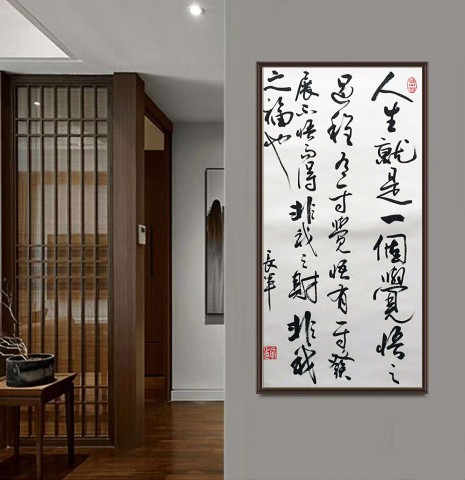 人生就是一個覺悟之
過程有一寸覺悟有一寸發
展不悟而得非我之財非我
之福也